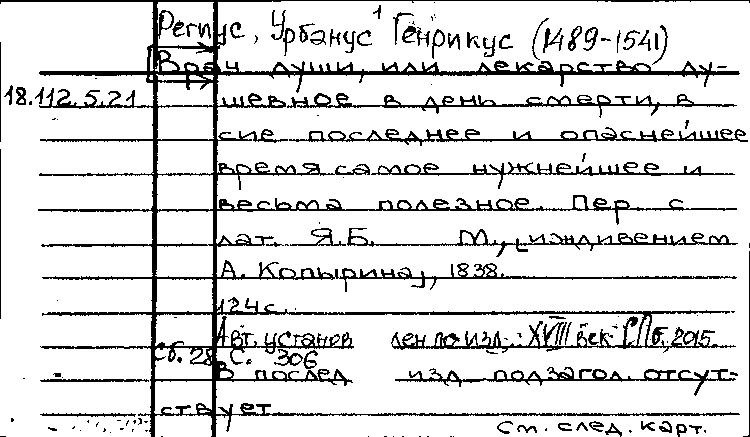 Региус, Урбанус Генрикус (1489-1541)
Врач души, или лекарство ду-
18.112.5.21 шевное в день смерти, в
сие последнее и опаснейшее
время самое нужнейшее и
весьма полезное. Пер. с
лат. Я.Б. М., [иждивением
А. Копырина], 1838.
124 с.
Авт. установлен по изд.: XVIII век. СПб, 2015
Сб. 28. С. 306
В послед изд подзагол. отсут-
ствует
См. след. карт.